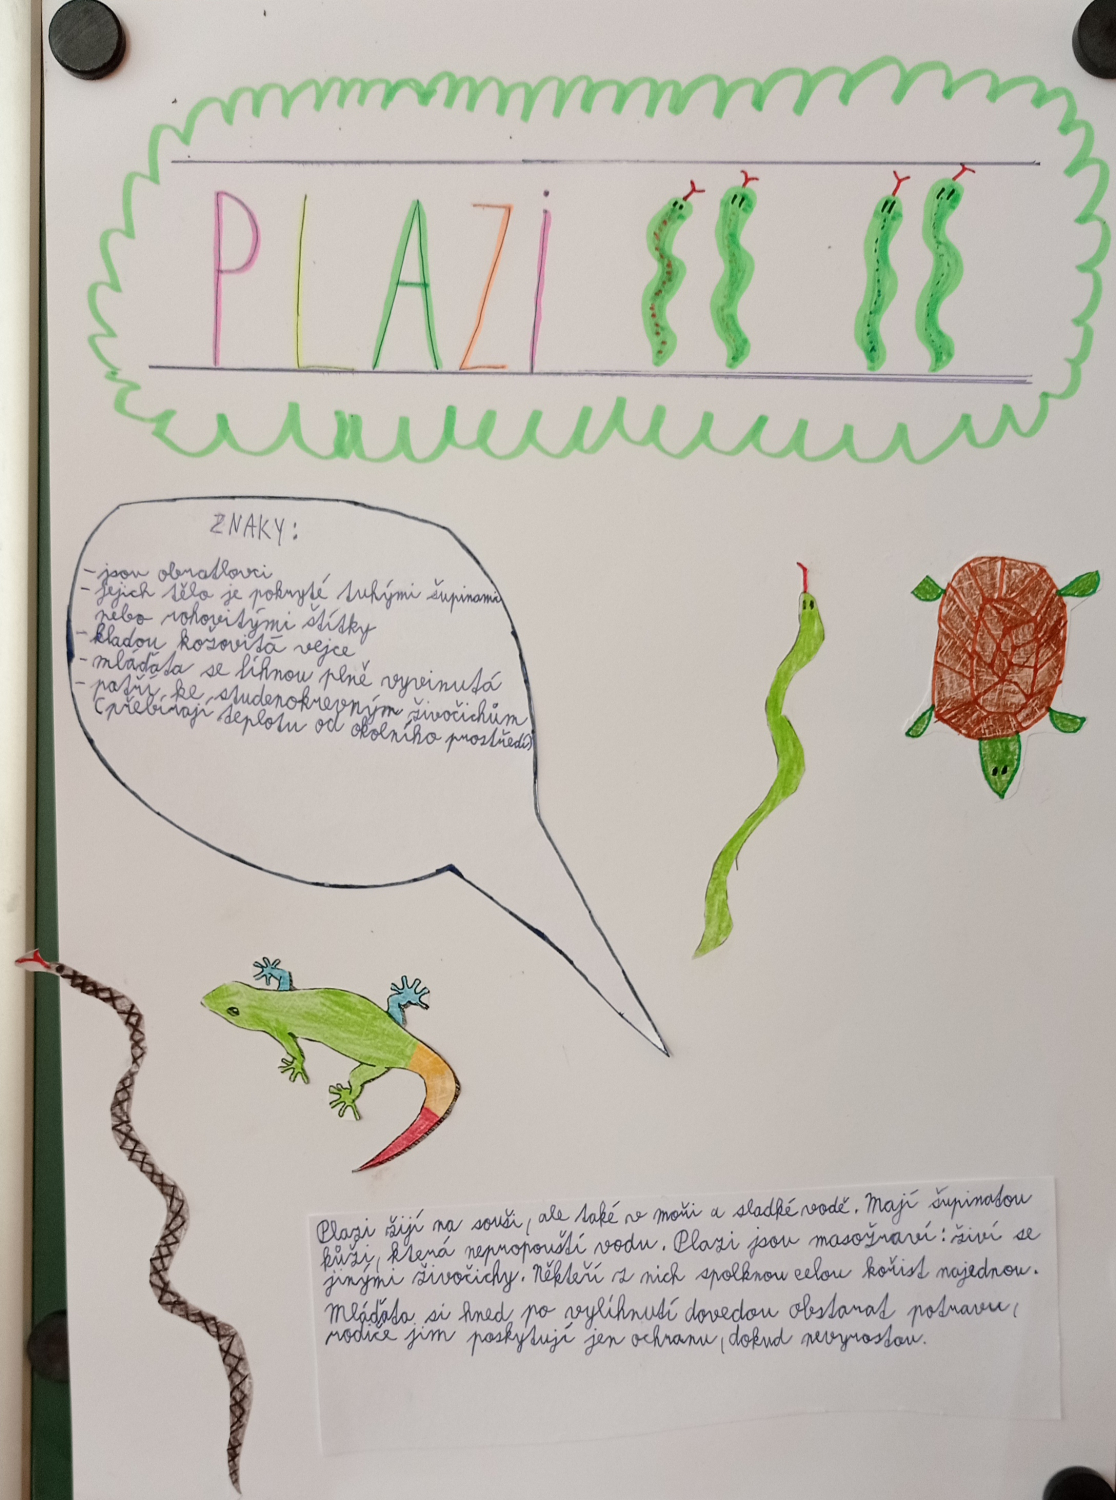 PLAZi
ZNAKY:
- jsou obratlovci
- jejich tělo je pokryté tuhými šupinami
nebo rohovitými štítky
- kladou kožovitá vejce
- mláďata se líhnou plně vyvinutá
- patří ke studenokrevným živočichům
(přebírají teplotu od okolního prostředí)
Plazi žijí na souši, ale také v moři a sladké vodě. Mají šupinatou
kůži, která nepropouští vodu. Plazi jsou masožraví: živí se
jinými živočichy. Někteří z nich spolknou celou kořist najednou.
Mláďata si hned po vylíhnutí dovedou obstarat potravu,
rodiče jim poskytují jen ochranu, dokud nevyrostou.